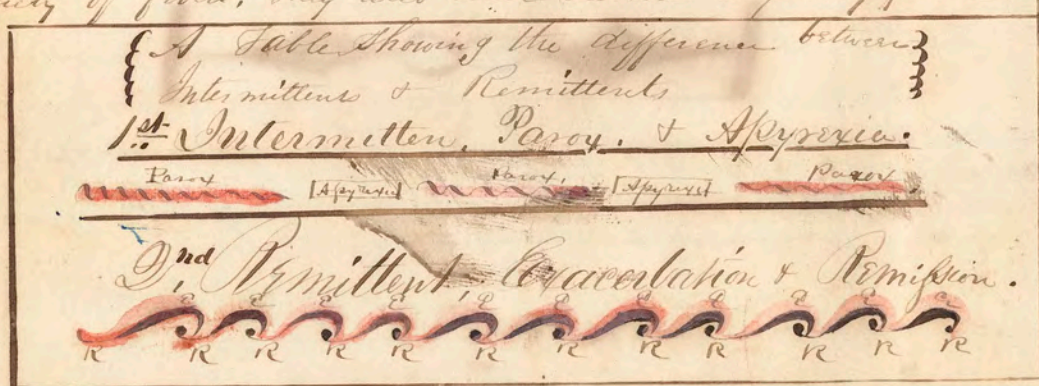 of food,
A Table Showing the difference between
Intermittens & Remittents
1st Intermitten, Parox. & Apyrexia.
Parox Apyrexia Parox, Apyrexi Parox
2,nd Remittent, Exacerbation & Remission.
E E E E E E E E E E E
R R R R R R R R R R R